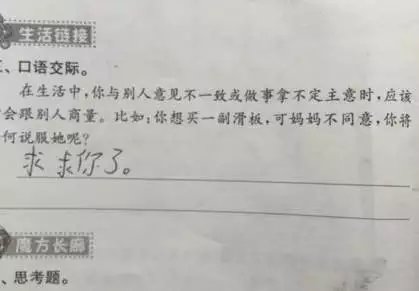 生活链接
、口语交际。
在生活中，你与别人意见不一致或做事拿不定主意时，应该
会跟别人商量。比如：你想买一副滑板，可妈妈不同意，你将
何说服她呢？
求求你了。
魔方长廊
、思考题。